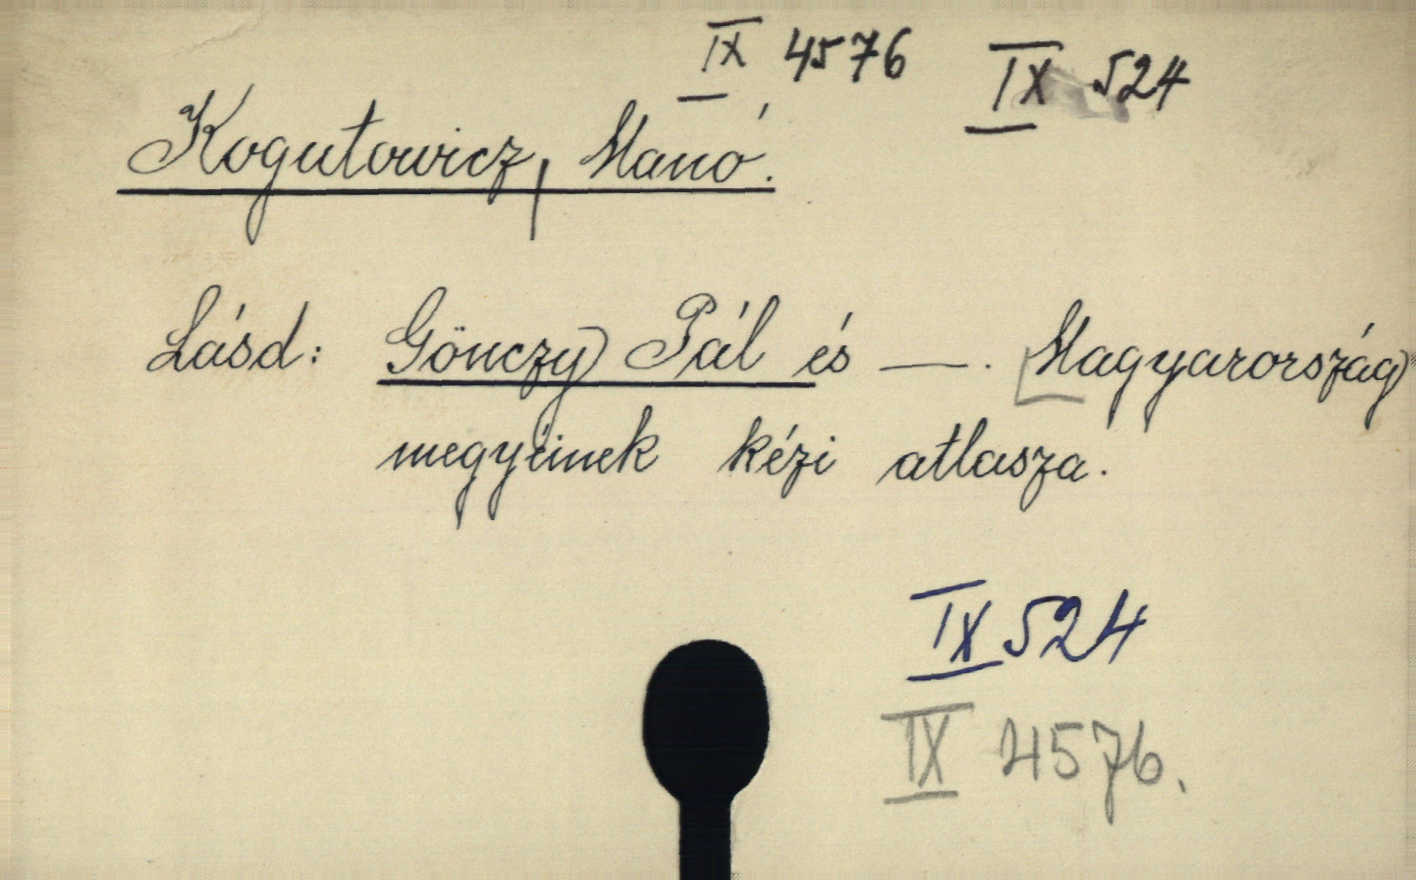 IX 4576 IX 524
Kogutowicz, Manó.
Lásd: Gönczy Pál és —. Magyarország
megyéinek kézi atlasza.
IX 524
IX 4576.